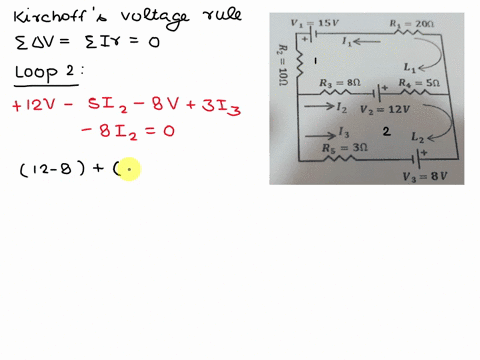 Kirchoff's voltage rule
ΣΔV = ΣIr = 0
Loop 2:
+12V - 5I₂ - 8V + 3I₃
- 8I₂ = 0
(12-8) + (
V₁ = 15V
R₁ = 20Ω
+
I₁
R₂ = 10Ω
1
L₁
R₃ = 8Ω
+
R₄ = 5Ω
I₂
V₂ = 12V
I₃
2
L₂
R₅ = 3Ω
+
V₃ = 8V